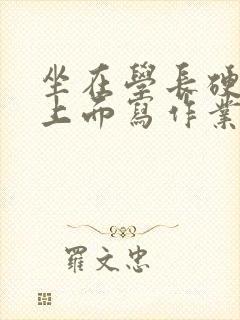 坐在學長硬
上而寫作業
羅文忠